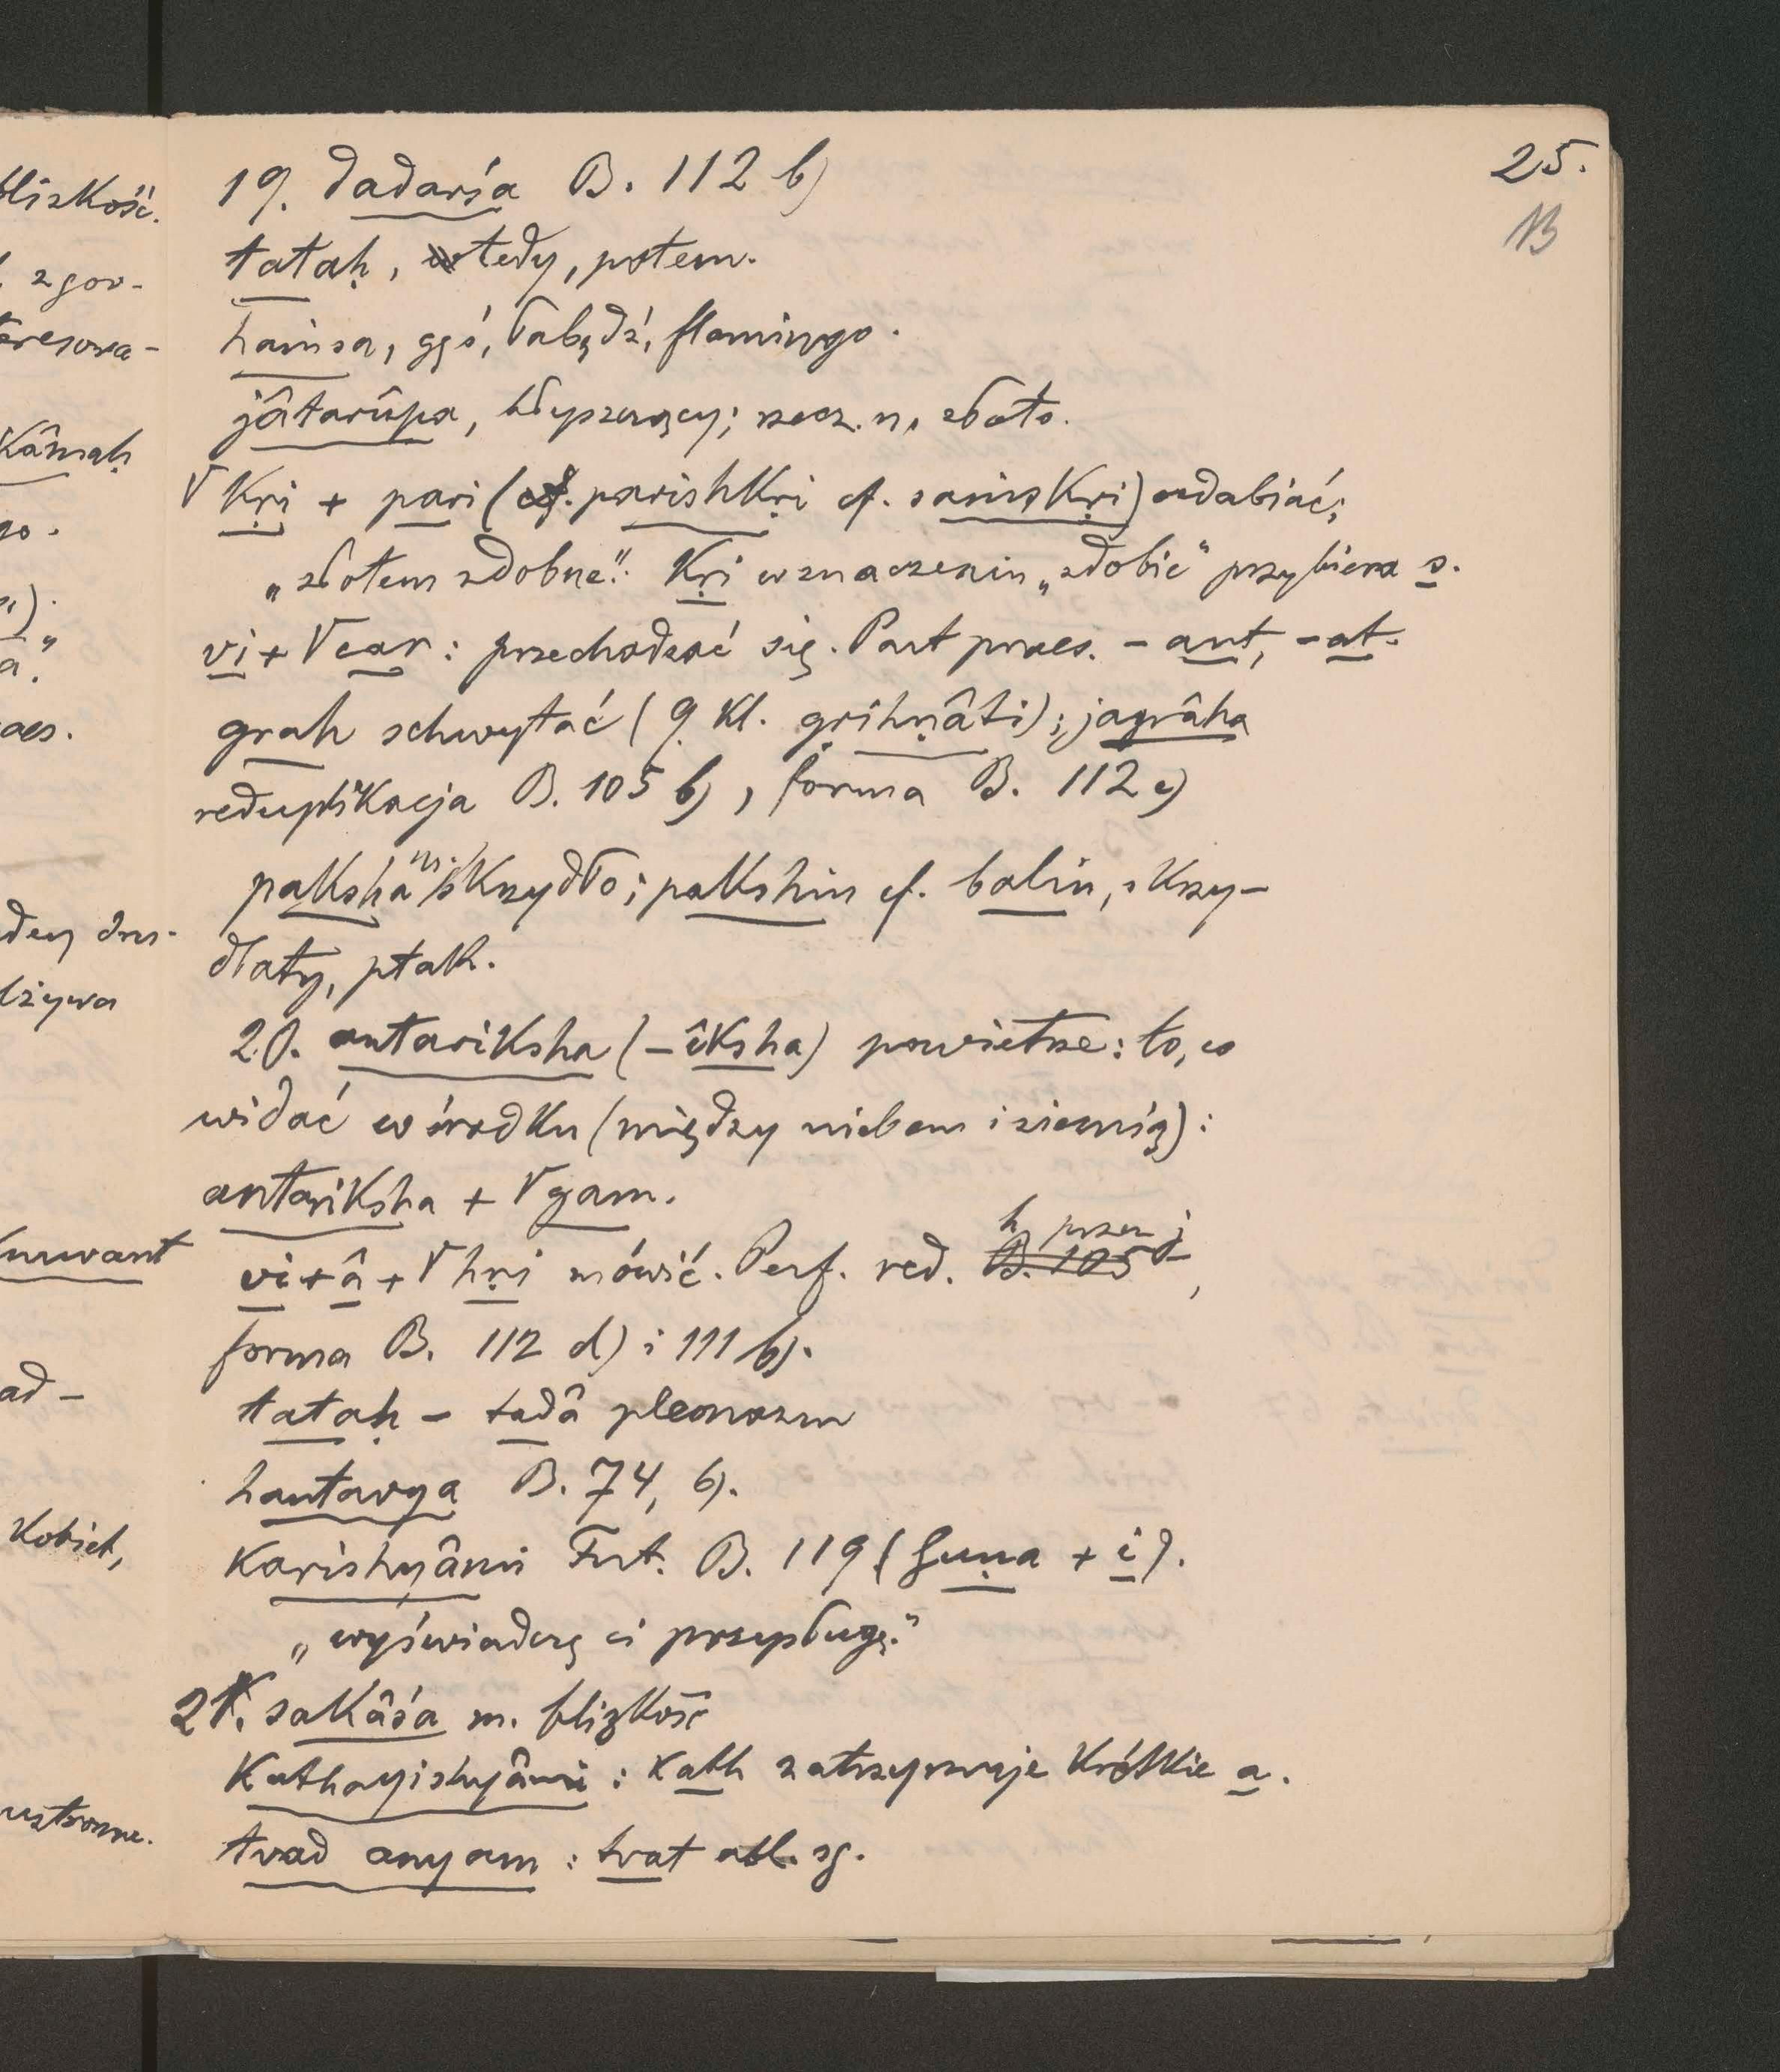 25.
19. dadarśa B. 112 b)
tataḥ, wtedy, potem.
haṁsa, gęś, łabędź, flamingo.
jâtarûpa, błyszczący; rzecz. n. złoto.
√kṛi + pari (cf. parishkṛi cf. saṁskṛi) ozdabiać;
„złotem zdobne". Kṛi w znaczeniu „zdobić" przybiera s.
vi + √car: przechodzać się. Part praes. - ant, - at.
grah schwytać (9 kl. gṛihṇâti); jagrâha
reduplikacja B. 105 b), forma B. 112 c)
paksha m. skrzydło; pakshin cf. balin, skrzy-
dlaty, ptak.
20. antariksha (- îksha) powietrze: to, co
widać w środku (między niebem i ziemią):
antariksha + √gam.
h przez j
vi + â + √hṛi mówić. Perf. red. B. 105,
forma B. 112 d) i 111 b).
tataḥ - tadâ pleonazm
hantavya B. 74, b).
karishyâmi Fut. B. 119 (Guṇa + i).
„wyświadczę ci przysługę."
21. sakâśa m. blizkość
Kathayishyâmi: kath zatrzymuje krótkie a.
tvad anyam: tvat abl. sg.
blizkość.
zgor-
teresowa-
Kâmaḥ
go.
aes.
dey dru-
nuvant
ad -
Kobiet,
ustronne.